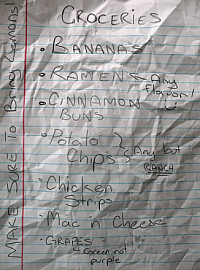 GROCERIES
• BANANAS
• RAMEN ← Any flavor!
• CINNAMON
BUNS
• Potato
Chips } Any but RANCH
• Chicken
Strips
• Mac 'n' Cheese
• GRAPES
↳ Green, not purple
MAKE SURE To Bring Lemons!